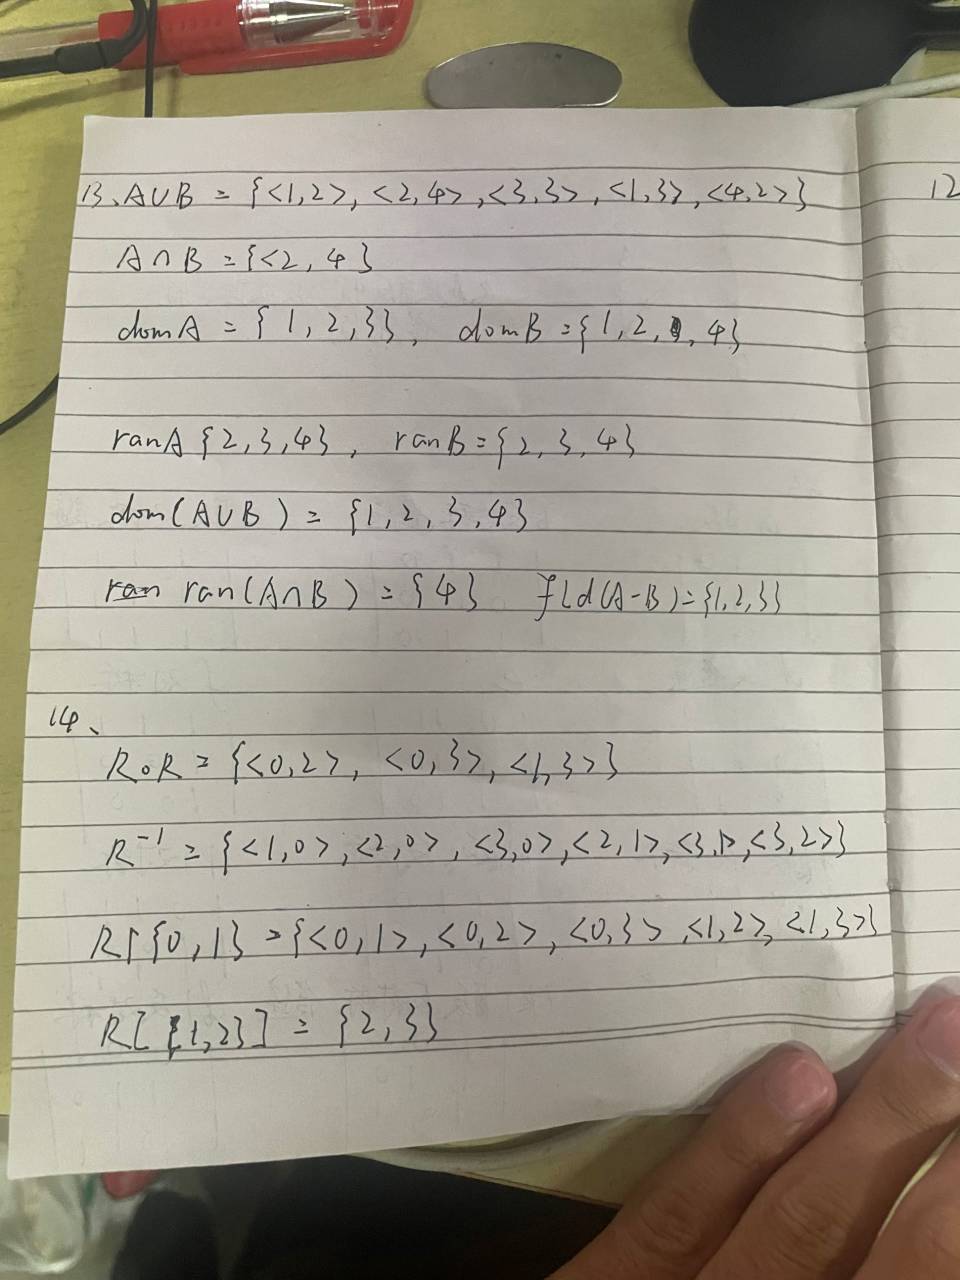 13、A∪B = {<1,2>, <2,4>, <3,3>, <1,3>, <4,2>}
12
A∩B = {<2,4}
domA = {1,2,3}, domB = {1,2, , 4}
ranA {2,3,4}, ranB = {2,3,4}
dom(A∪B) = {1,2,3,4}
ran ran(A∩B) = {4} fld(A-B) = {1,2,3}
14、
R∘R = {<0,2>, <0,3>, <1,3>}
R⁻¹ = {<1,0>, <2,0>, <3,0>, <2,1>, <3,1>, <3,2>}
R↾{0,1} = {<0,1>, <0,2>, <0,3>, <1,2>, <1,3>}
R[{1,2}] = {2,3}